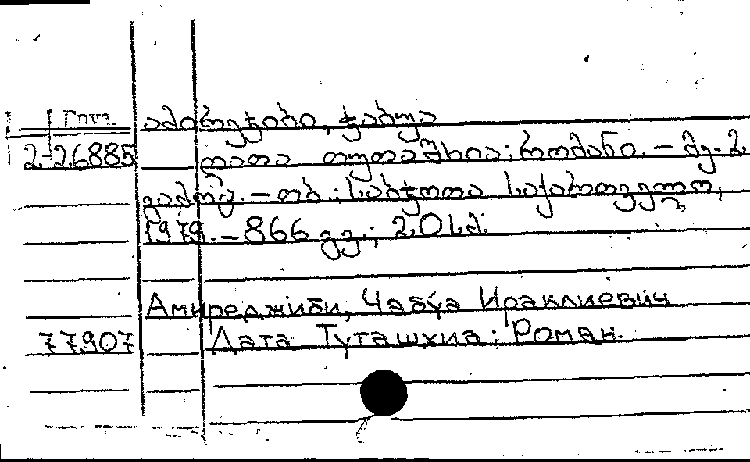 Груз.
ამირეჯიბი, ჭაბუა
2-26885 დათა თუთაშხია: რომანი. – მე-2
გამოც. – თბ.: საბჭოთა საქართველო,
1979. – 866 გვ.; 20 სმ.
Амиреджиби, Чабуа Ираклиевич
77.907 Дата Туташхиа: Роман.